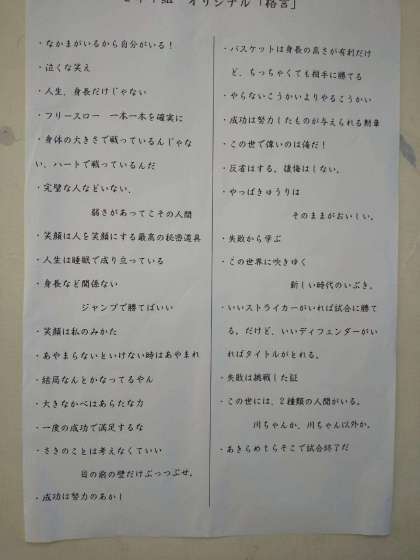 組 オリジナル「格言」
・なかまがいるから自分がいる！
・泣くな笑え
・人生、身長だけじゃない
・フリースロー　一本一本を確実に
・身体の大きさで戦っているんじゃな
い、ハートで戦っているんだ
・完璧な人などいない、
弱さがあってこその人間
・笑顔は人を笑顔にする最高の秘密道具
・人生は睡眠で成り立っている
・身長など関係ない
ジャンプで勝てばいい
・笑顔は私のみかた
・あやまらないといけない時はあやまれ
・結局なんとかなってるやん
・大きなかべはあらたな力
・一度の成功で満足するな
・さきのことは考えなくていい
目の前の壁だけぶっつぶせ。
・成功は努力のあかし
・バスケットは身長の高さが有利だけ
ど、ちっちゃくても相手に勝てる
・やらないこうかいよりやるこうかい
・成功は努力したものが与えられる勲章
・この世で偉いのは俺だ！
・反省はする。後悔はしない。
・やっぱきゅうりは
そのままがおいしい。
・失敗から学ぶ
・この世界に吹きゆく
新しい時代のいぶき。
・いいストライカーがいれば試合に勝て
る。だけど、いいディフェンダーがい
ればタイトルがとれる。
・失敗は挑戦した証
・この世には、2種類の人間がいる。
川ちゃんか、川ちゃん以外か。
・あきらめたらそこで試合終了だ